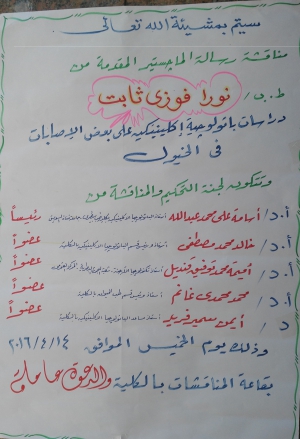 سيتم بمشيئة الله تعالى
مناقشة رسالة الماجستير المقدمة من
ط.ب/ نورا فوزى ثابت
دراسات باثولوجية إكلينيكية على بعض الإصابات
فى الخيول
وتتكون لجنة التحكيم والمناقشة من
أ.د/ أسامة على محمد عبدالله رئيساً
أ.د/ خالد محمد مصطفى عضواً
أ.د/ أميمة محمد توفيق قنديل عضواً
أ.د/ محمد حمدى غانم عضواً
د/ أيمن سمير فريد عضواً
وذلك يوم الخميس الموافق ٢٠١٦/٤/١٤
بقاعة المناقشات بالكلية والدعوة عامة